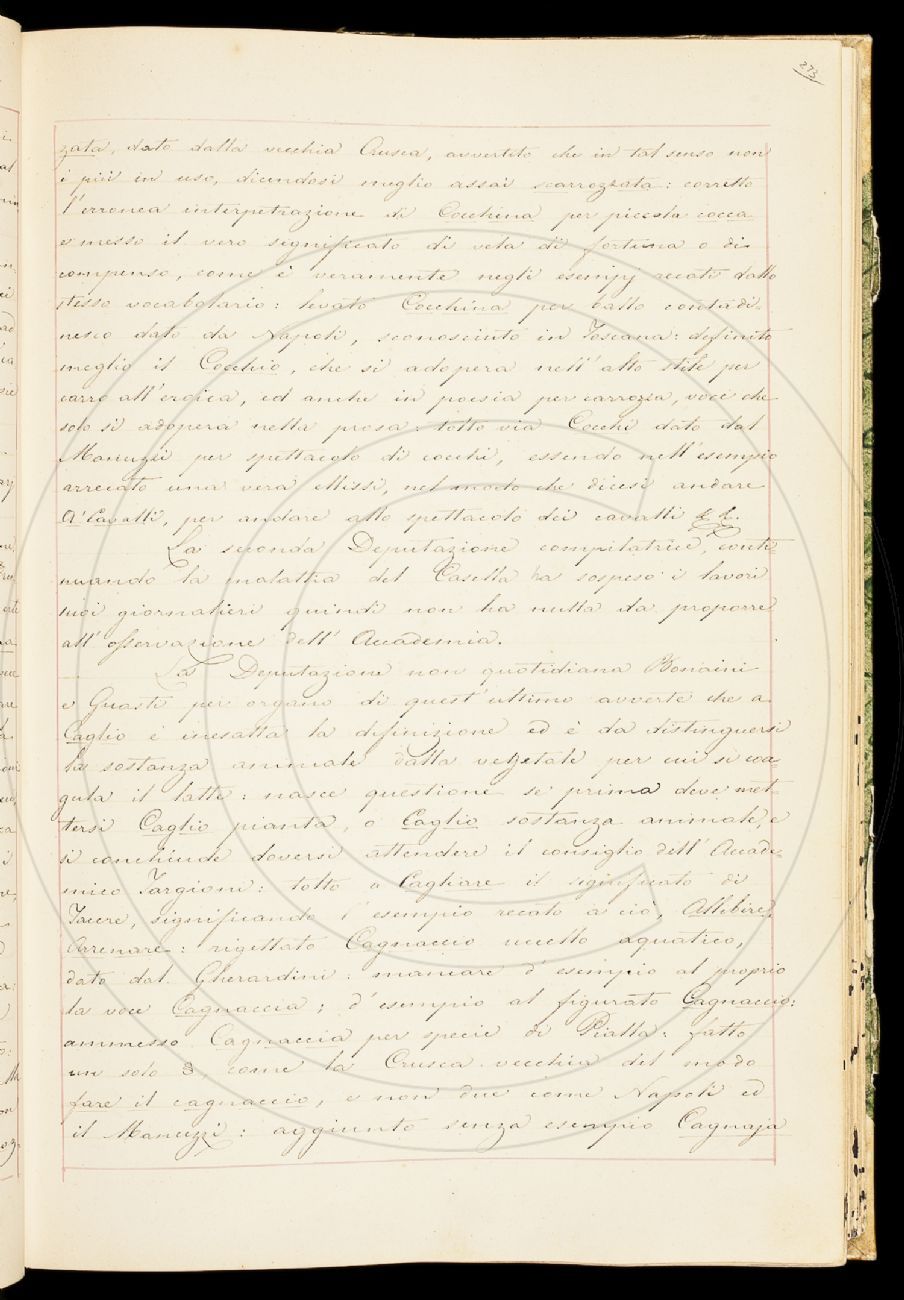 273
zata, dato dalla vecchia Crusca, avvertito che in tal senso non
è più in uso, dicendosi meglio assai scarrozzata: corretto
l'erronea interpetrazione di Cocchina per piccola cocca
e messo il vero significato di vela di fortuna o di
compenso, come è veramente negli esempj recati dallo
stesso vocabolario: levato Cocchina per ballo contadi-
nesco dato da Napoli, sconosciuto in Toscana: definito
meglio il Cocchio, che si adopera nell'alto stile per
carro all'eroica, ed anche in poesia per carrozza, voce che
solo si adopera nella prosa: tolto via Cocchi dato dal
Manuzzi per spettacolo di cocchi, essendo nell'esempio
arrecato una vera ellissi, nel modo che dicesi andare
a' Cavalli, per andare allo spettacolo dei cavalli &. &.
La seconda Deputazione compilatrice, conti-
nuando la malattia del Casella ha sospeso i lavori
suoi giornalieri quindi non ha nulla da proporre
all'osservazione dell'Accademia.
La Deputazione non quotidiana Bonaini
e Guasti per organo di quest'ultimo avverte che a
Caglio è inesatta la definizione ed è da distinguersi
la sostanza animale dalla vegetale per cui si coa-
gula il latte: nasce questione se prima deve met-
tersi Caglio pianta, o Caglio sostanza animale, e
si conchiude doversi attendere il consiglio dell'Accade-
mico Targioni: tolto a Cagliare il significato di
Tacere, significando l'esempio recato a ciò, Allibire,
Arrenare: rigettato Cagnaccio uccello aquatico,
dato dal Gherardini: mancare d'esempio al proprio
la voce Cagnaccia; d'esempio al figurato Cagnaccio:
ammesso Cagnaccia per specie di Pialla: fatto
un solo §, come la Crusca vecchia del modo
fare il cagnaccio, e non due come Napoli ed
il Manuzzi: aggiunto senza esempio Cagnaja